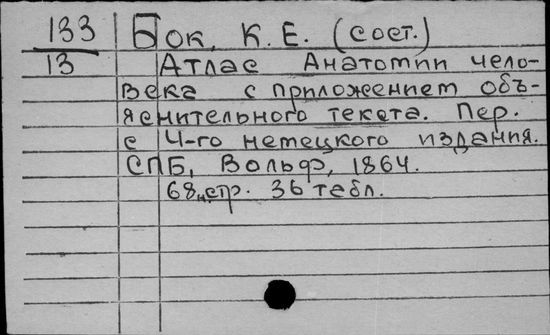 133 Бок, К. Е. (сост.)
13 Атлас Анатомии чело-
века с приложением объ-
яснительного текста. Пер.
с 4-го немецкого издания.
СПБ, Вольф, 1864.
68 стр. 36 табл.